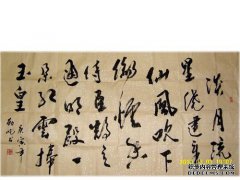 淡月疏
星繞建章
仙風吹下
御爐香
侍臣鵠立
通明殿一
朵紅雲捧
玉皇